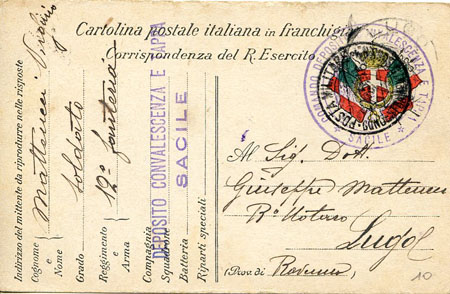 Cartolina postale italiana in franchigia
Corrispondenza del R. Esercito
COMANDO DEPOSITO CONVALESCENZA E TAPPA
* SACILE *
POSTA MILITARE
Al Sig. Dott.
Giuseppe Matteucci
Rº Notaro
Lugo
(Prov. di Ravenna)
10
Indirizzo del mittente da riprodurre nelle risposte
Cognome e Nome
Matteucci
Grado
soldato
Reggimento e Arma
12º fanteria
Compagnia
Squadrone
Batteria
Riparti speciali
DEPOSITO CONVALESCENZA E TAPPA
SACILE